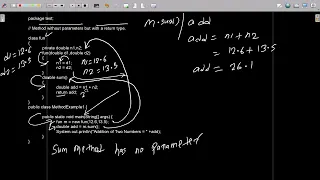 package test;
// Method without parameters but with a return type.
class fun
{
private double n1,n2;
fun(double d1,double d2)
{
n1 = d1;
n2 = d2;
}
double sum()
{
double add = n1 + n2;
return add;
}
}
public class MethodExample1 {
public static void main(String[] args) {
fun m = new fun(12.6,13.5);
double add = m.sum();
System.out.println("Addition of Two Numbers = " +add);
}
d1=12.6
d2=13.5
n1=12.6
n2=13.5
m.sum() | add
add = n1+n2
= 12.6+13.5
add = 26.1
Sum method has no parameter